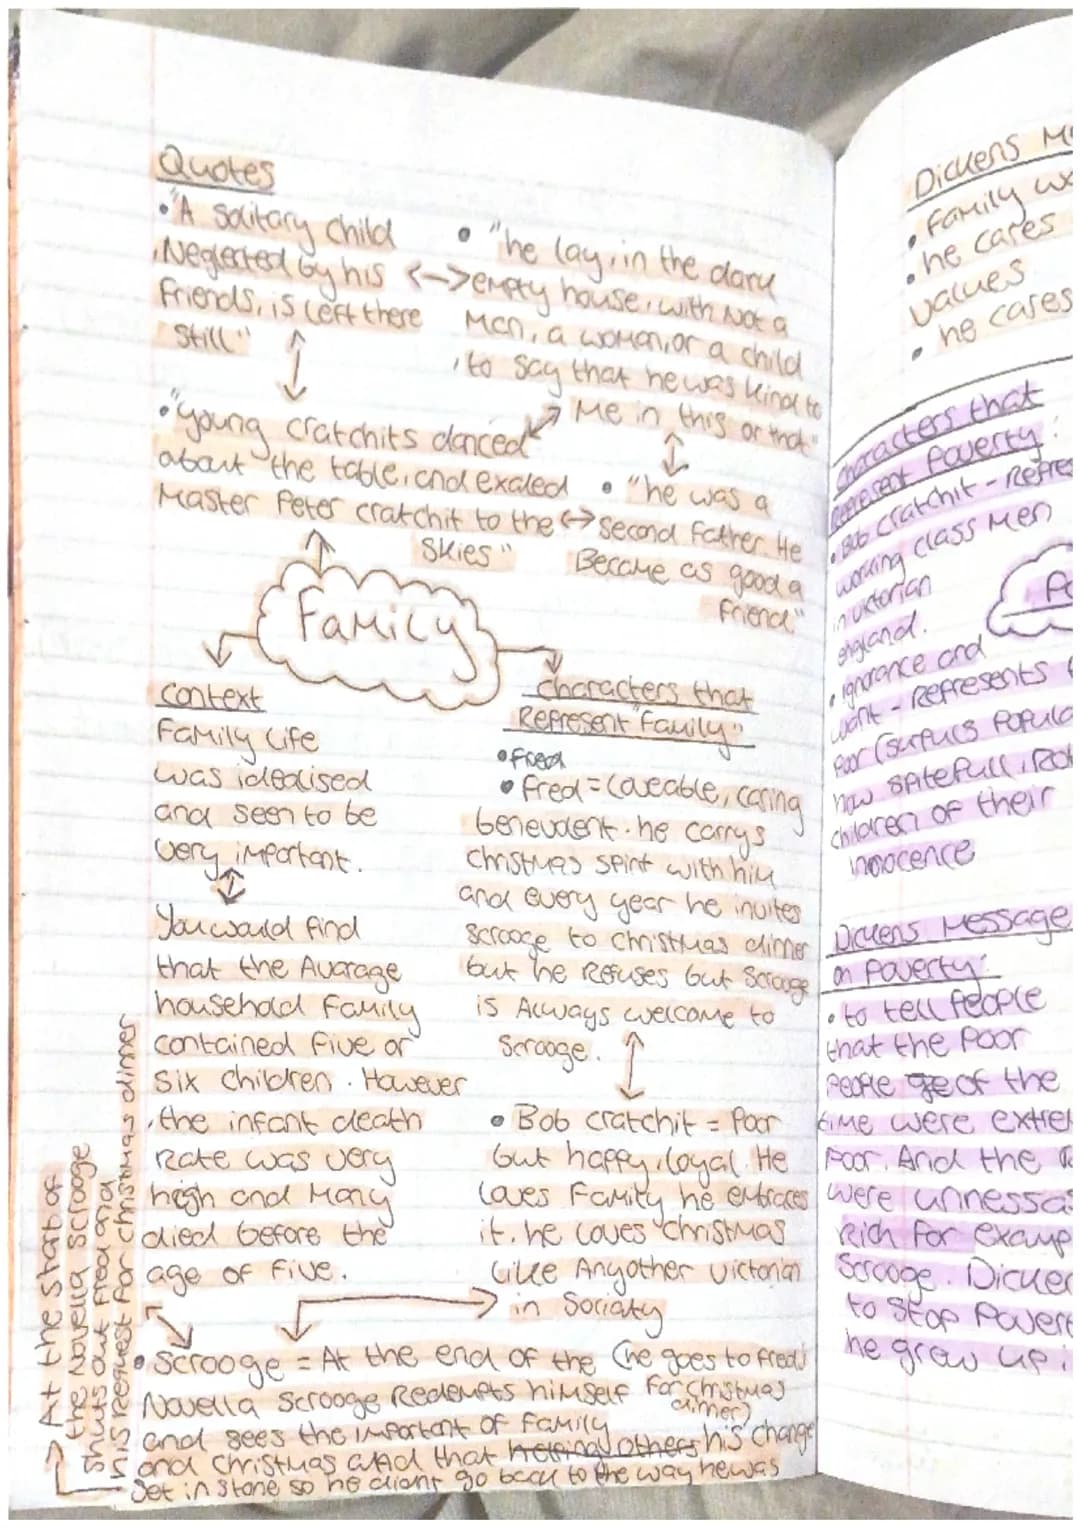 Quotes
• "A solitary child
, Neglected by his
friends, is left there
still"
• "he lay, in the dark
<-> empty house, with Not a
Man, a woman, or a child
, to say that he was kind to
Me in this or that"
• "young cratchits danced
about the table, and exaled
Master Peter cratchit to the <->
skies"
• "he was a
second Father. He
Became as good a
friend"
Family
context
Family Life
was idealised
and seen to be
very important.
You would find
that the Avarage
household Family
contained five or
six children. However
, the infant death
Rate was very
high and Many
died before the
age of five.
characters that
Represent "Family"
• Fred
• Fred = Loveable, caring
benevolent. he carrys
christmas spirit with him
and every year he invites
scrooge to christmas dinner
but he Refuses but Scrooge
is Always welcome to
Scrooge.
• Bob cratchit = Poor
but happy, loyal. He
Loves Family he embraces
it. he loves christmas
Like Anyother victorian
in Sociaty
• Scrooge = At the end of the (he goes to freds
Novella Scrooge Redempts himself For christmas
dinner)
and sees the important of family
and christmas and that helping others his change
Set in stone so he didnt go back to the way he was
At the start of
the Novella Scrooge
shuts out Fred and
his request for christmas dinner
Dickens
• Family
• he cares
values
• he cares
characters that
Represent Poverty:
• Bob cratchit -
working class Men
in victorian
england.
• ignorance and
want - Represents
Poor (surplus
how spitefull,
children of their
innocence
Dickens Message
on Poverty:
• to tell People
that the Poor
People ge of the
time were
Poor. And the
were
Rich For
Scrooge.
to stop
he grew up